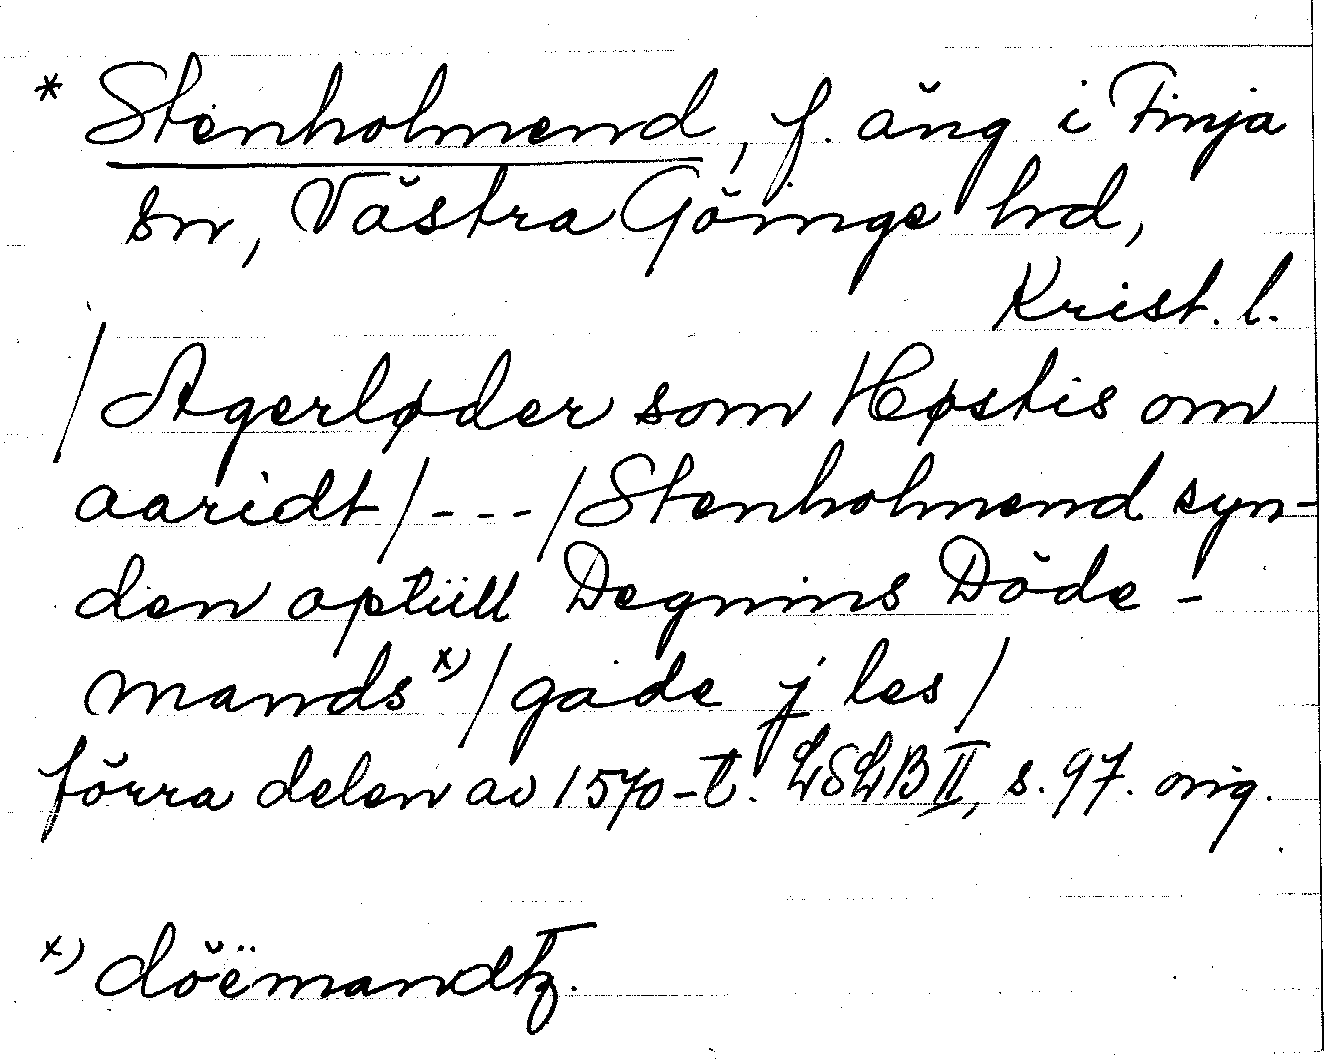 * Stenholmend, f. äng i Finja
sn, Västra Göinge hd,
Krist. l.
/Agerløder som Høstis om
aaridt/---/Stenholmend syn-
den optiill Degnins Döde-
mands x)/gade j les/
förra delen av 1570-t. LSLB II, s. 97. orig.
x) döëmandtz.